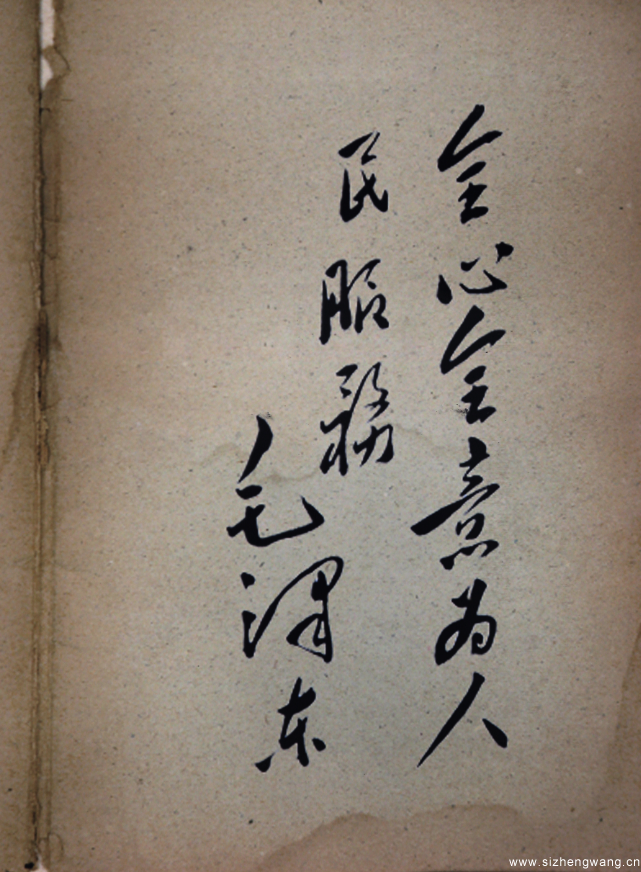 全心全意为人
民服務
毛泽东
www.sizhengwang.cn